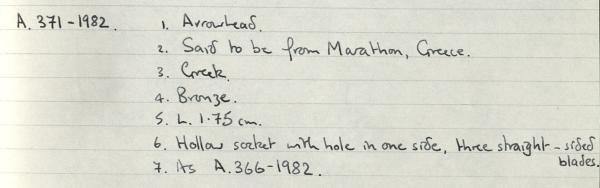 A. 371-1982. 1. Arrowhead.
2. Said to be from Marathon, Greece.
3. Greek.
4. Bronze.
5. L. 1·75 cm.
6. Hollow socket with hole in one side, three straight-sided
blades.
7. As A.366-1982.